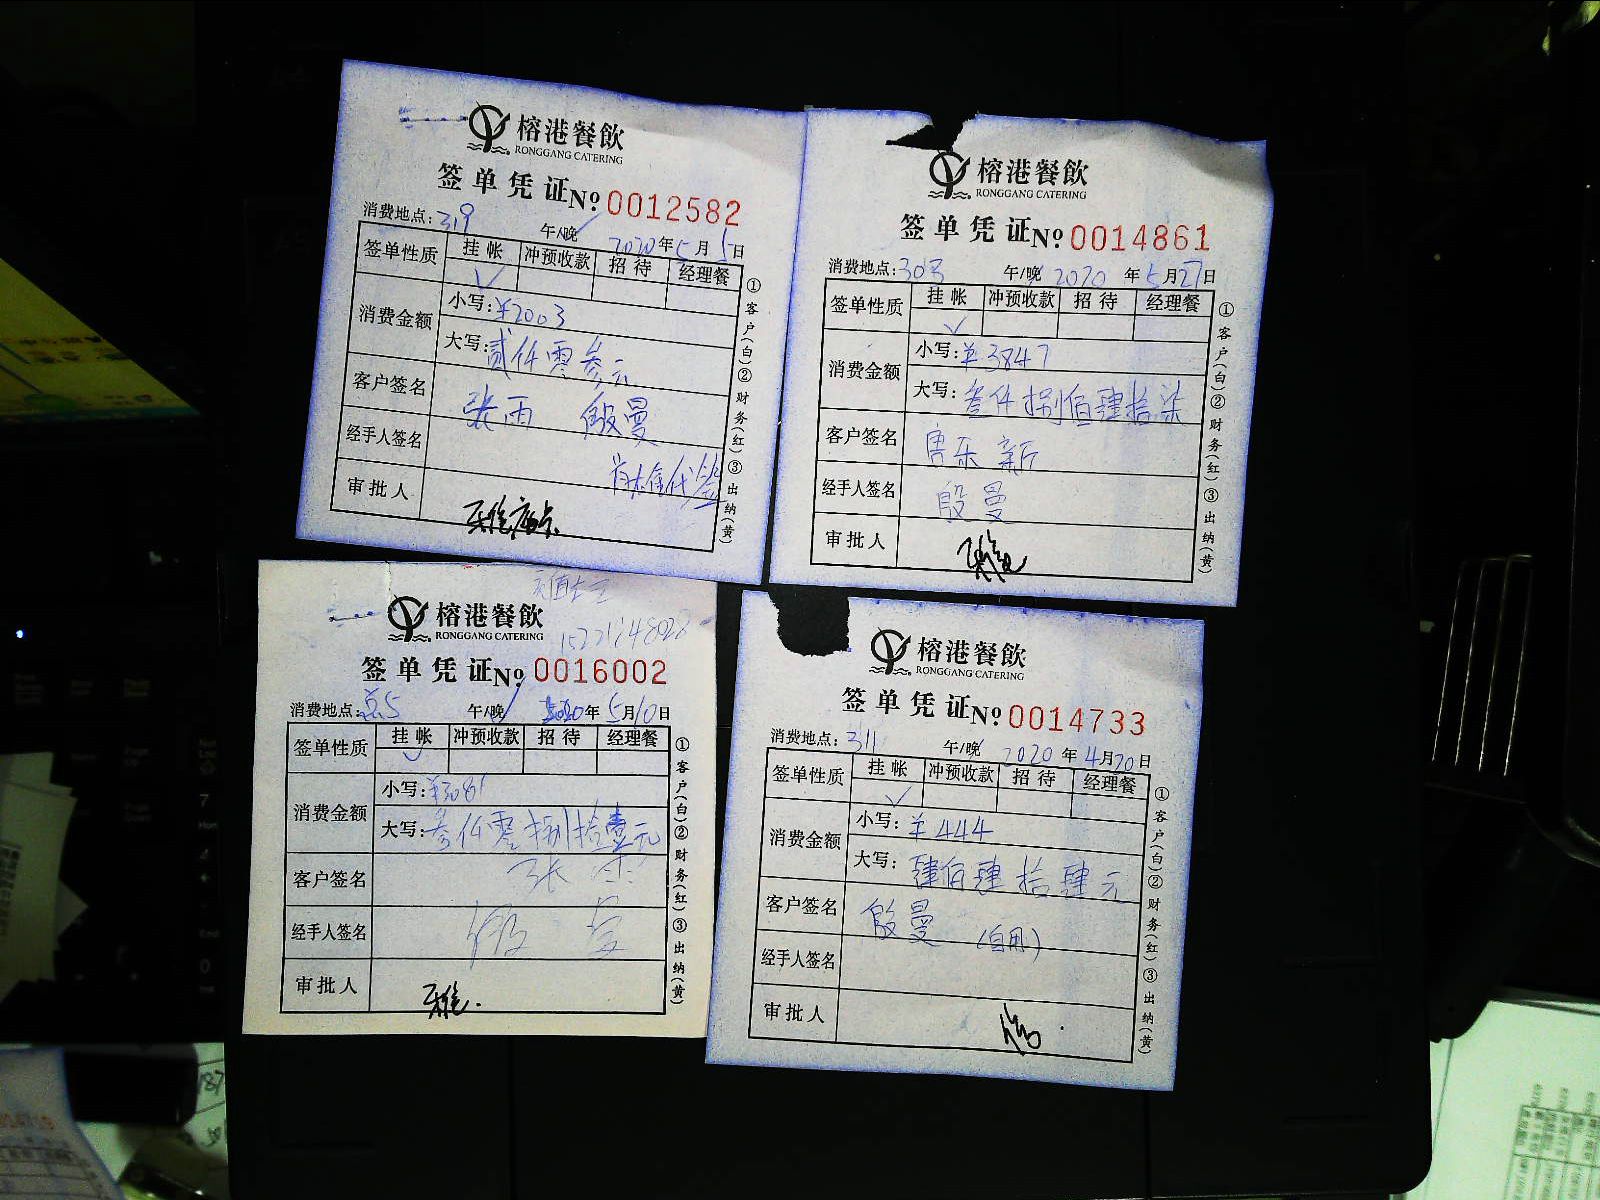 榕港餐飲
RONGGANG CATERING
签单凭证 № 0012582
消费地点:319 午/晚 2020年5月5日
签单性质 挂帐 冲预收款 招待 经理餐
✓
消费金额 小写:¥2003
大写:贰仟零叁元
客户签名 张雨 殷曼
经手人签名
审批人
①客户(白)②财务(红)③出纳(黄)
榕港餐飲
RONGGANG CATERING
签单凭证 № 0014861
消费地点:303 午/晚 2020年5月27日
签单性质 挂帐 冲预收款 招待 经理餐
✓
消费金额 小写:¥3847
大写:叁仟捌佰肆拾柒
客户签名 唐乐
经手人签名 殷曼
审批人
①客户(白)②财务(红)③出纳(黄)
榕港餐飲
RONGGANG CATERING
签单凭证 № 0016002
消费地点: 午/晚 2020年5月10日
签单性质 挂帐 冲预收款 招待 经理餐
✓
消费金额 小写:¥3081
大写:叁仟零捌拾壹元
客户签名 张雨
经手人签名 殷曼
审批人
①客户(白)②财务(红)③出纳(黄)
榕港餐飲
RONGGANG CATERING
签单凭证 № 0014733
消费地点:311 午/晚 2020年4月20日
签单性质 挂帐 冲预收款 招待 经理餐
✓
消费金额 小写:¥444
大写:肆佰肆拾肆元
客户签名 殷曼 (自用)
经手人签名
审批人
①客户(白)②财务(红)③出纳(黄)